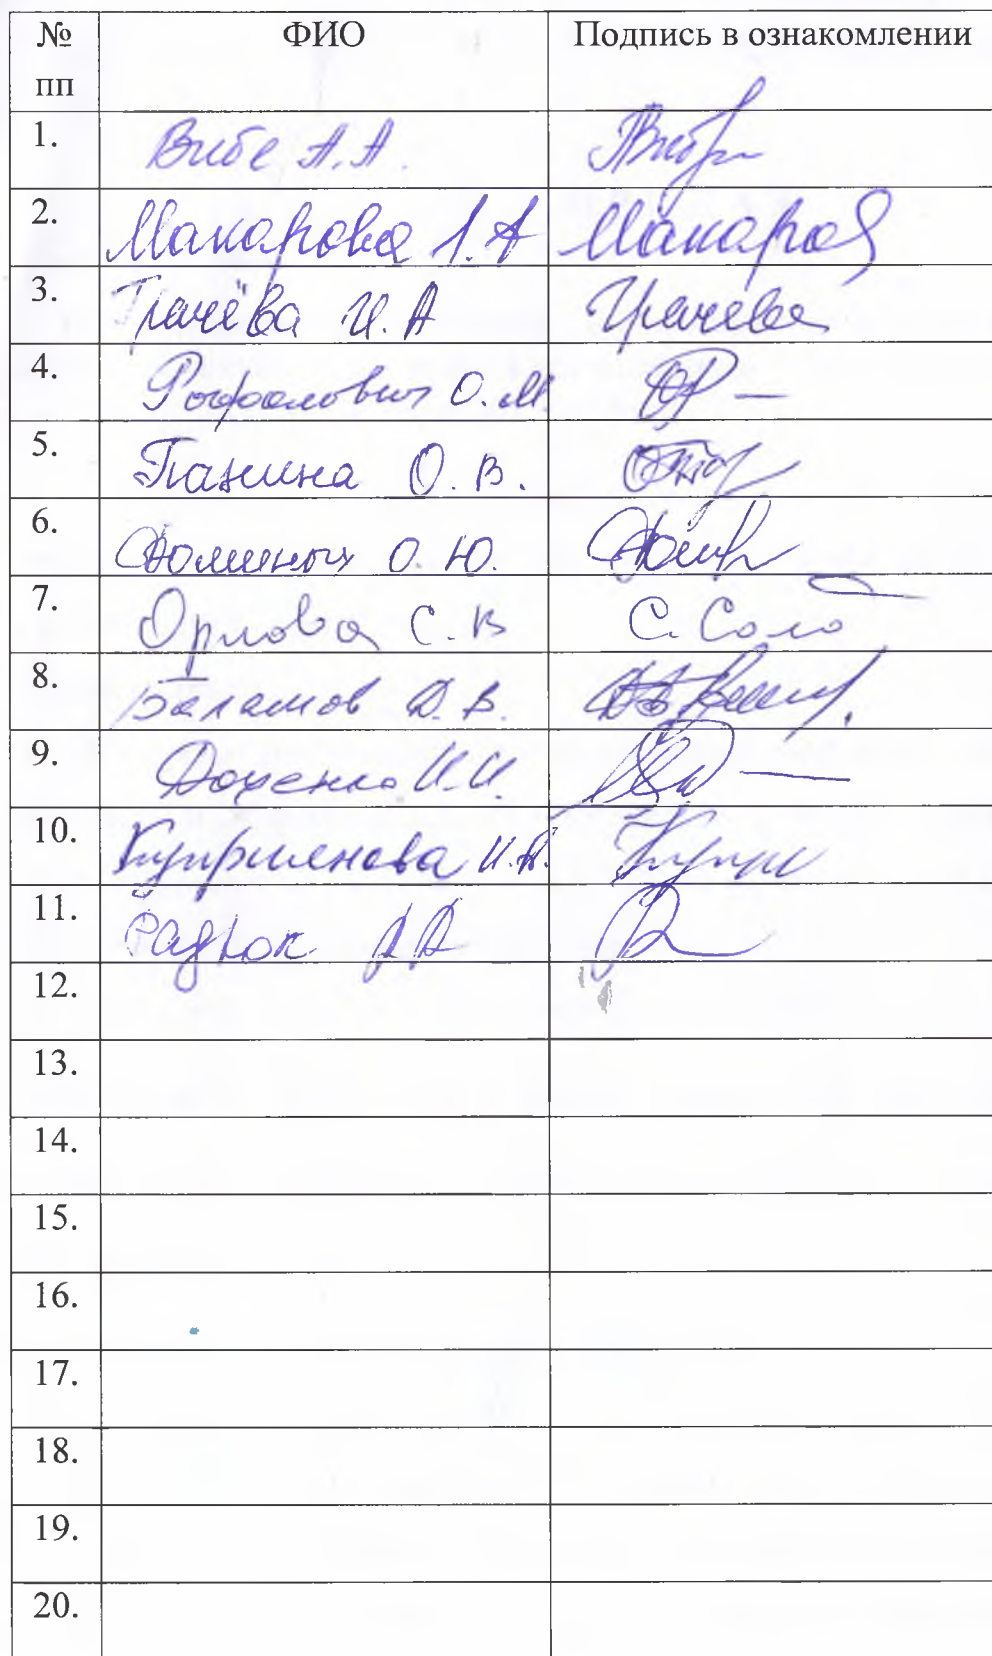 № ФИО Подпись в ознакомлении
пп
1. Вибе А.А.
2. Макарова Л.А Макаров
3. Грачёва И.А Грачева
4. Рафалович О.М.
5. Панина О.В.
6. Фоминых О.Ю.
7. Орлова С.В С. Соло
8. Балашов Д.В.
9. Доценко И.И.
10. Куприянова И.А.
11. Радюк
12.
13.
14.
15.
16.
17.
18.
19.
20.